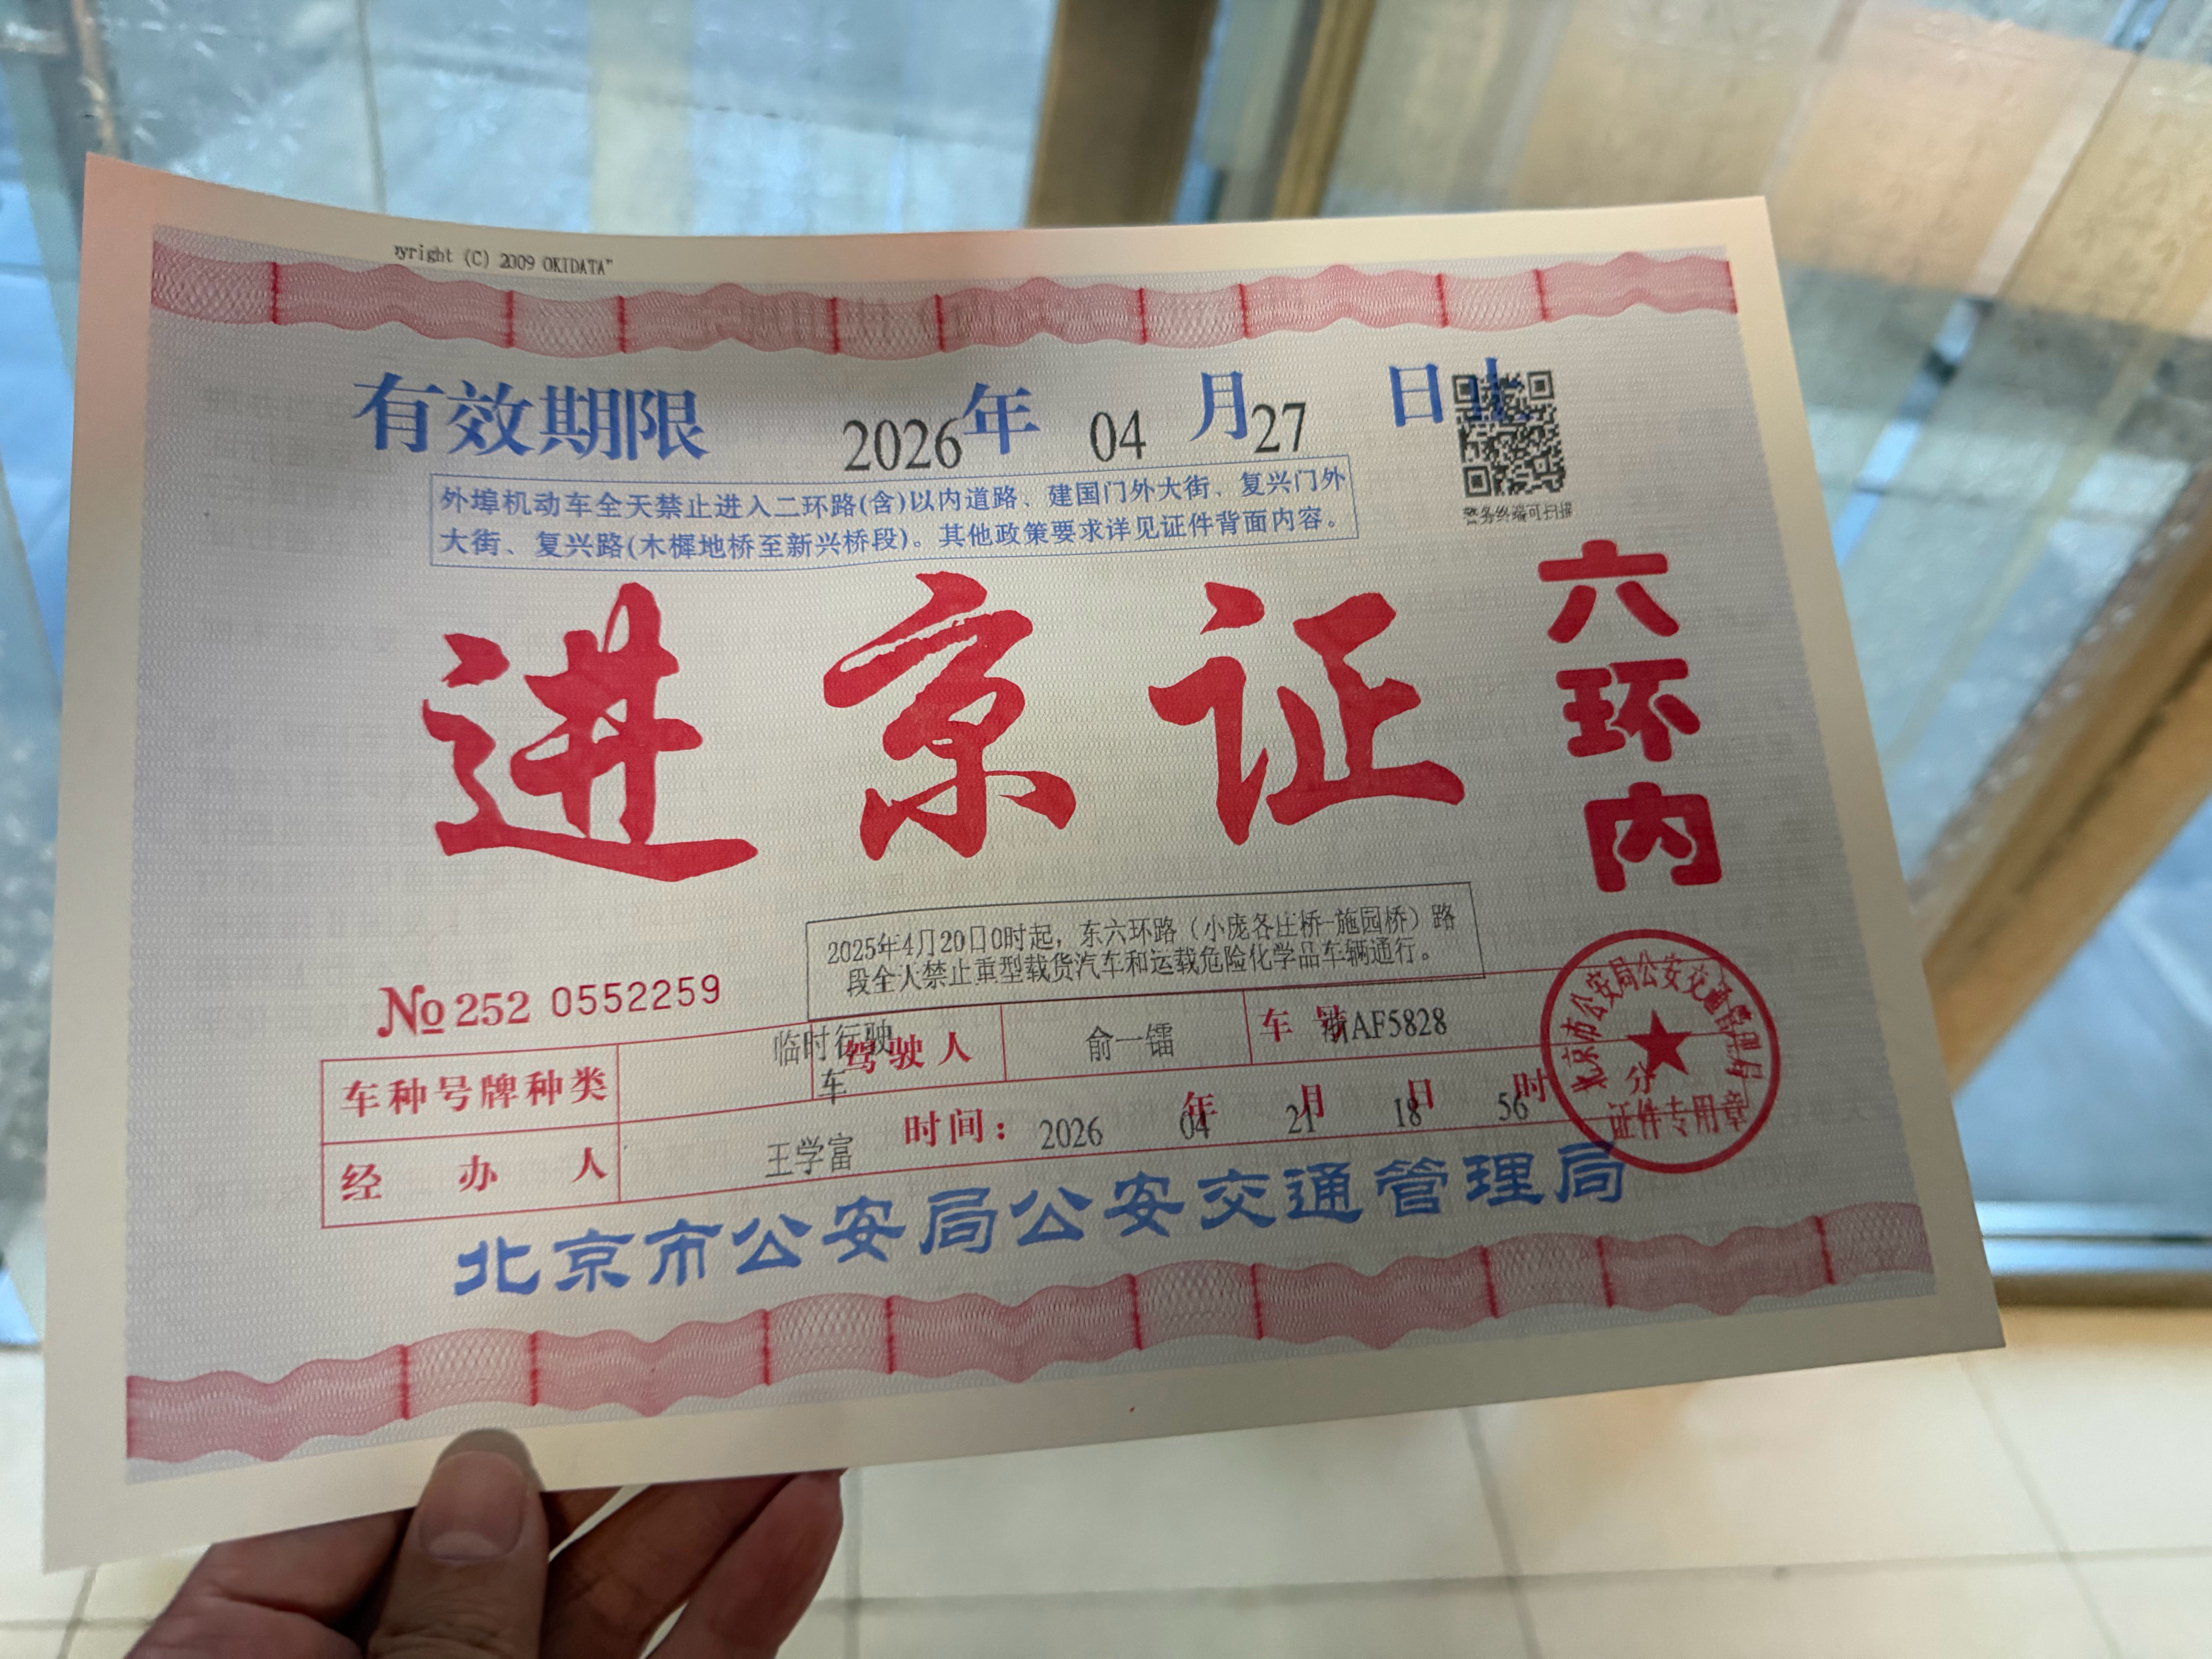 yright (C) 2009 OKIDATA"
有效期限 2026年 04 月27 日止
外埠机动车全天禁止进入二环路(含)以内道路、建国门外大街、复兴门外
大街、复兴路(木樨地桥至新兴桥段)。其他政策要求详见证件背面内容。
警务终端可扫描
进京证
六环内
2025年4月20日0时起，东六环路（小庞各庄桥-施园桥）路
段全天禁止重型载货汽车和运载危险化学品车辆通行。
№ 252 0552259
车种号牌种类 临时行驶车 驾驶人 俞一镭 车号 浙AF5828
经办人 王学富 时间：2026年04月21日18时56分
北京市公安局公安交通管理局
证件专用章
北京市公安局公安交通管理局